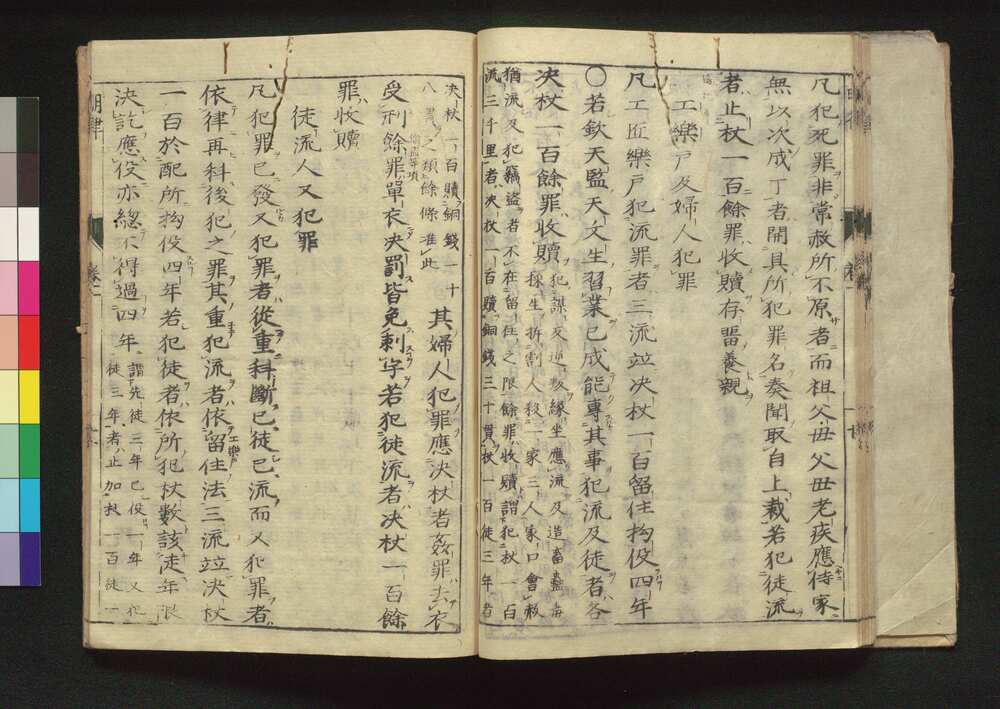 凡犯死罪非常赦所不原者而祖父母父母老疾應侍家
無以次成丁者開具所犯罪名奏聞取自上裁若犯徒流
者止杖一百餘罪收贖存畱養親
工樂戶及婦人犯罪
凡工匠樂戶犯流罪者三流並决杖一百留住拘役四年
○若欽天監天文生習業已成能專其事犯流及徒者各
决杖一百餘罪收贖
犯謀反逆叛縁坐應流及造畜蠱毒
採生折割人殺一家三人家口會赦
猶流及犯竊盗者不在留住之限餘罪收贖謂犯杖一百
流三千里者决杖一百贖銅錢三十貫杖一百徒三年者
决杖一百贖銅錢一十
八貫之類餘條准此
其婦人犯罪應决杖者姦罪去衣
受刑餘罪單衣决罰皆免刺字若犯徒流者决杖一百餘
罪收贖
徒流人又犯罪
凡犯罪已發又犯罪者從重科斷已徒已流而又犯罪者
依律再科後犯之罪其重犯流者依留住法三流並决杖
一百於配所拘役四年若犯徒者依所犯杖數該徒年限
决訖應役亦總不得過四年
謂先徒三年已役一年又犯
徒三年者止加杖一百徒一
明律
卷一